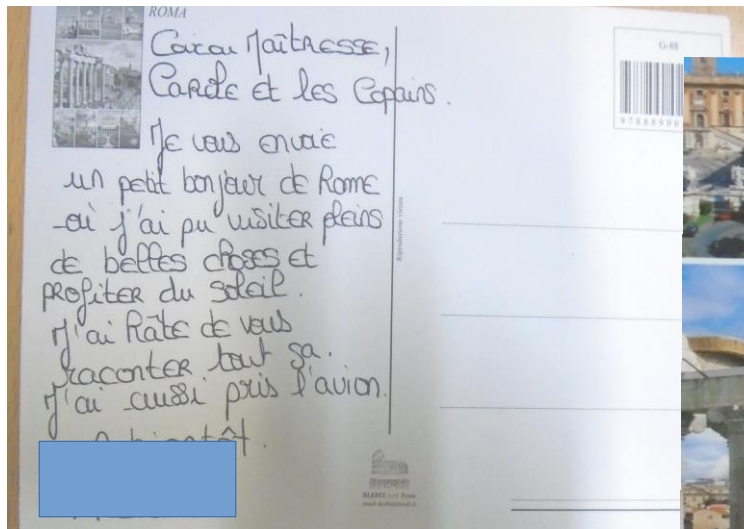 ROMA
Coucou Maîtresse,
Carole et les Copains.
Je vous envoie
un petit bonjour de Rome
où j'ai pu visiter pleins
de belles choses et
profiter du soleil.
J'ai hâte de vous
raconter tout sa.
J'ai aussi pris l'avion.
bientôt.
Riproduzione vietata
G-88